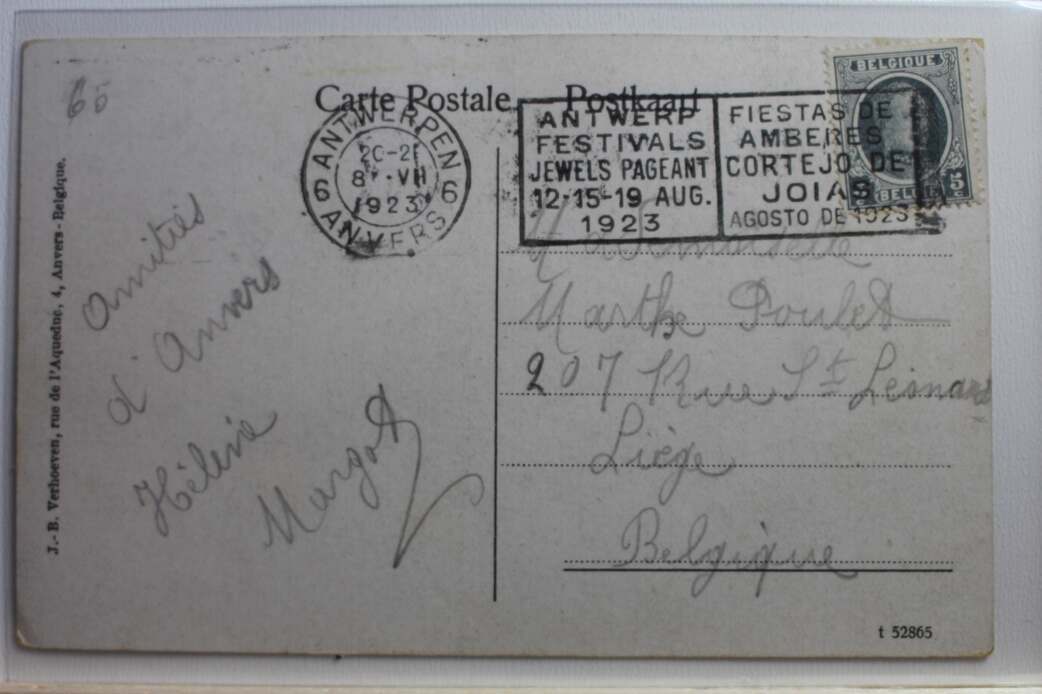 65
Carte Postale Postkaart
ANTWERPEN
6 20-21 6
8 · VII
1923
ANVERS
ANTWERP
FESTIVALS
JEWELS PAGEANT
12-15-19 AUG.
1923
FIESTAS DE
AMBERES
CORTEJO DE
JOIAS
AGOSTO DE 1923
BELGIQUE
BELGIE 5
C
J.-B. Verhoeven, rue de l'Aqueduc, 4, Anvers - Belgique.
Amitiés
d'Anvers
Hélène
Margot
Mademoiselle
Marthe Poulet
207 Rue St Léonard
Liège
Belgique
t 52865